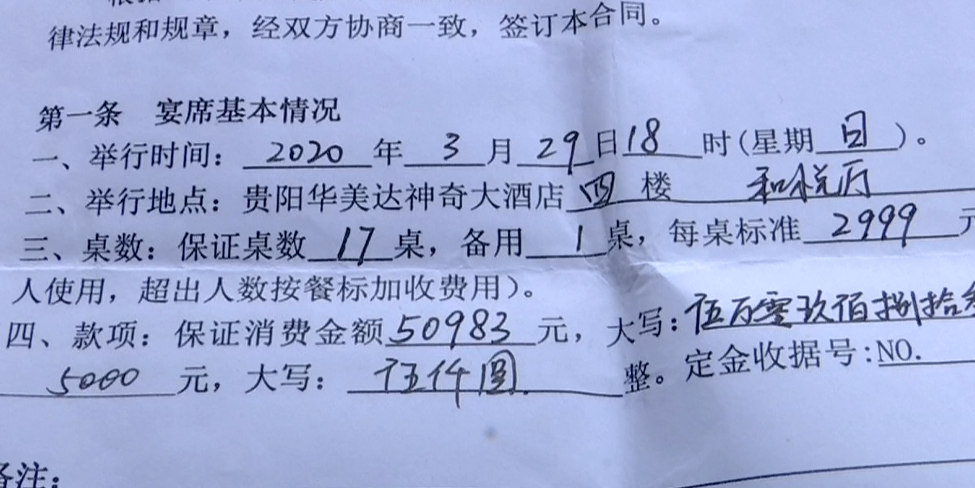 律法规和规章，经双方协商一致，签订本合同。
第一条 宴席基本情况
一、举行时间：2020年3月29日18时(星期日)。
二、举行地点：贵阳华美达神奇大酒店四楼 和悦厅
三、桌数：保证桌数17桌，备用1桌，每桌标准2999元
人使用，超出人数按餐标加收费用)。
四、款项：保证消费金额50983元，大写：伍万零玖佰捌拾叁
5000元，大写：伍仟圆.整。定金收据号:NO.
备注：